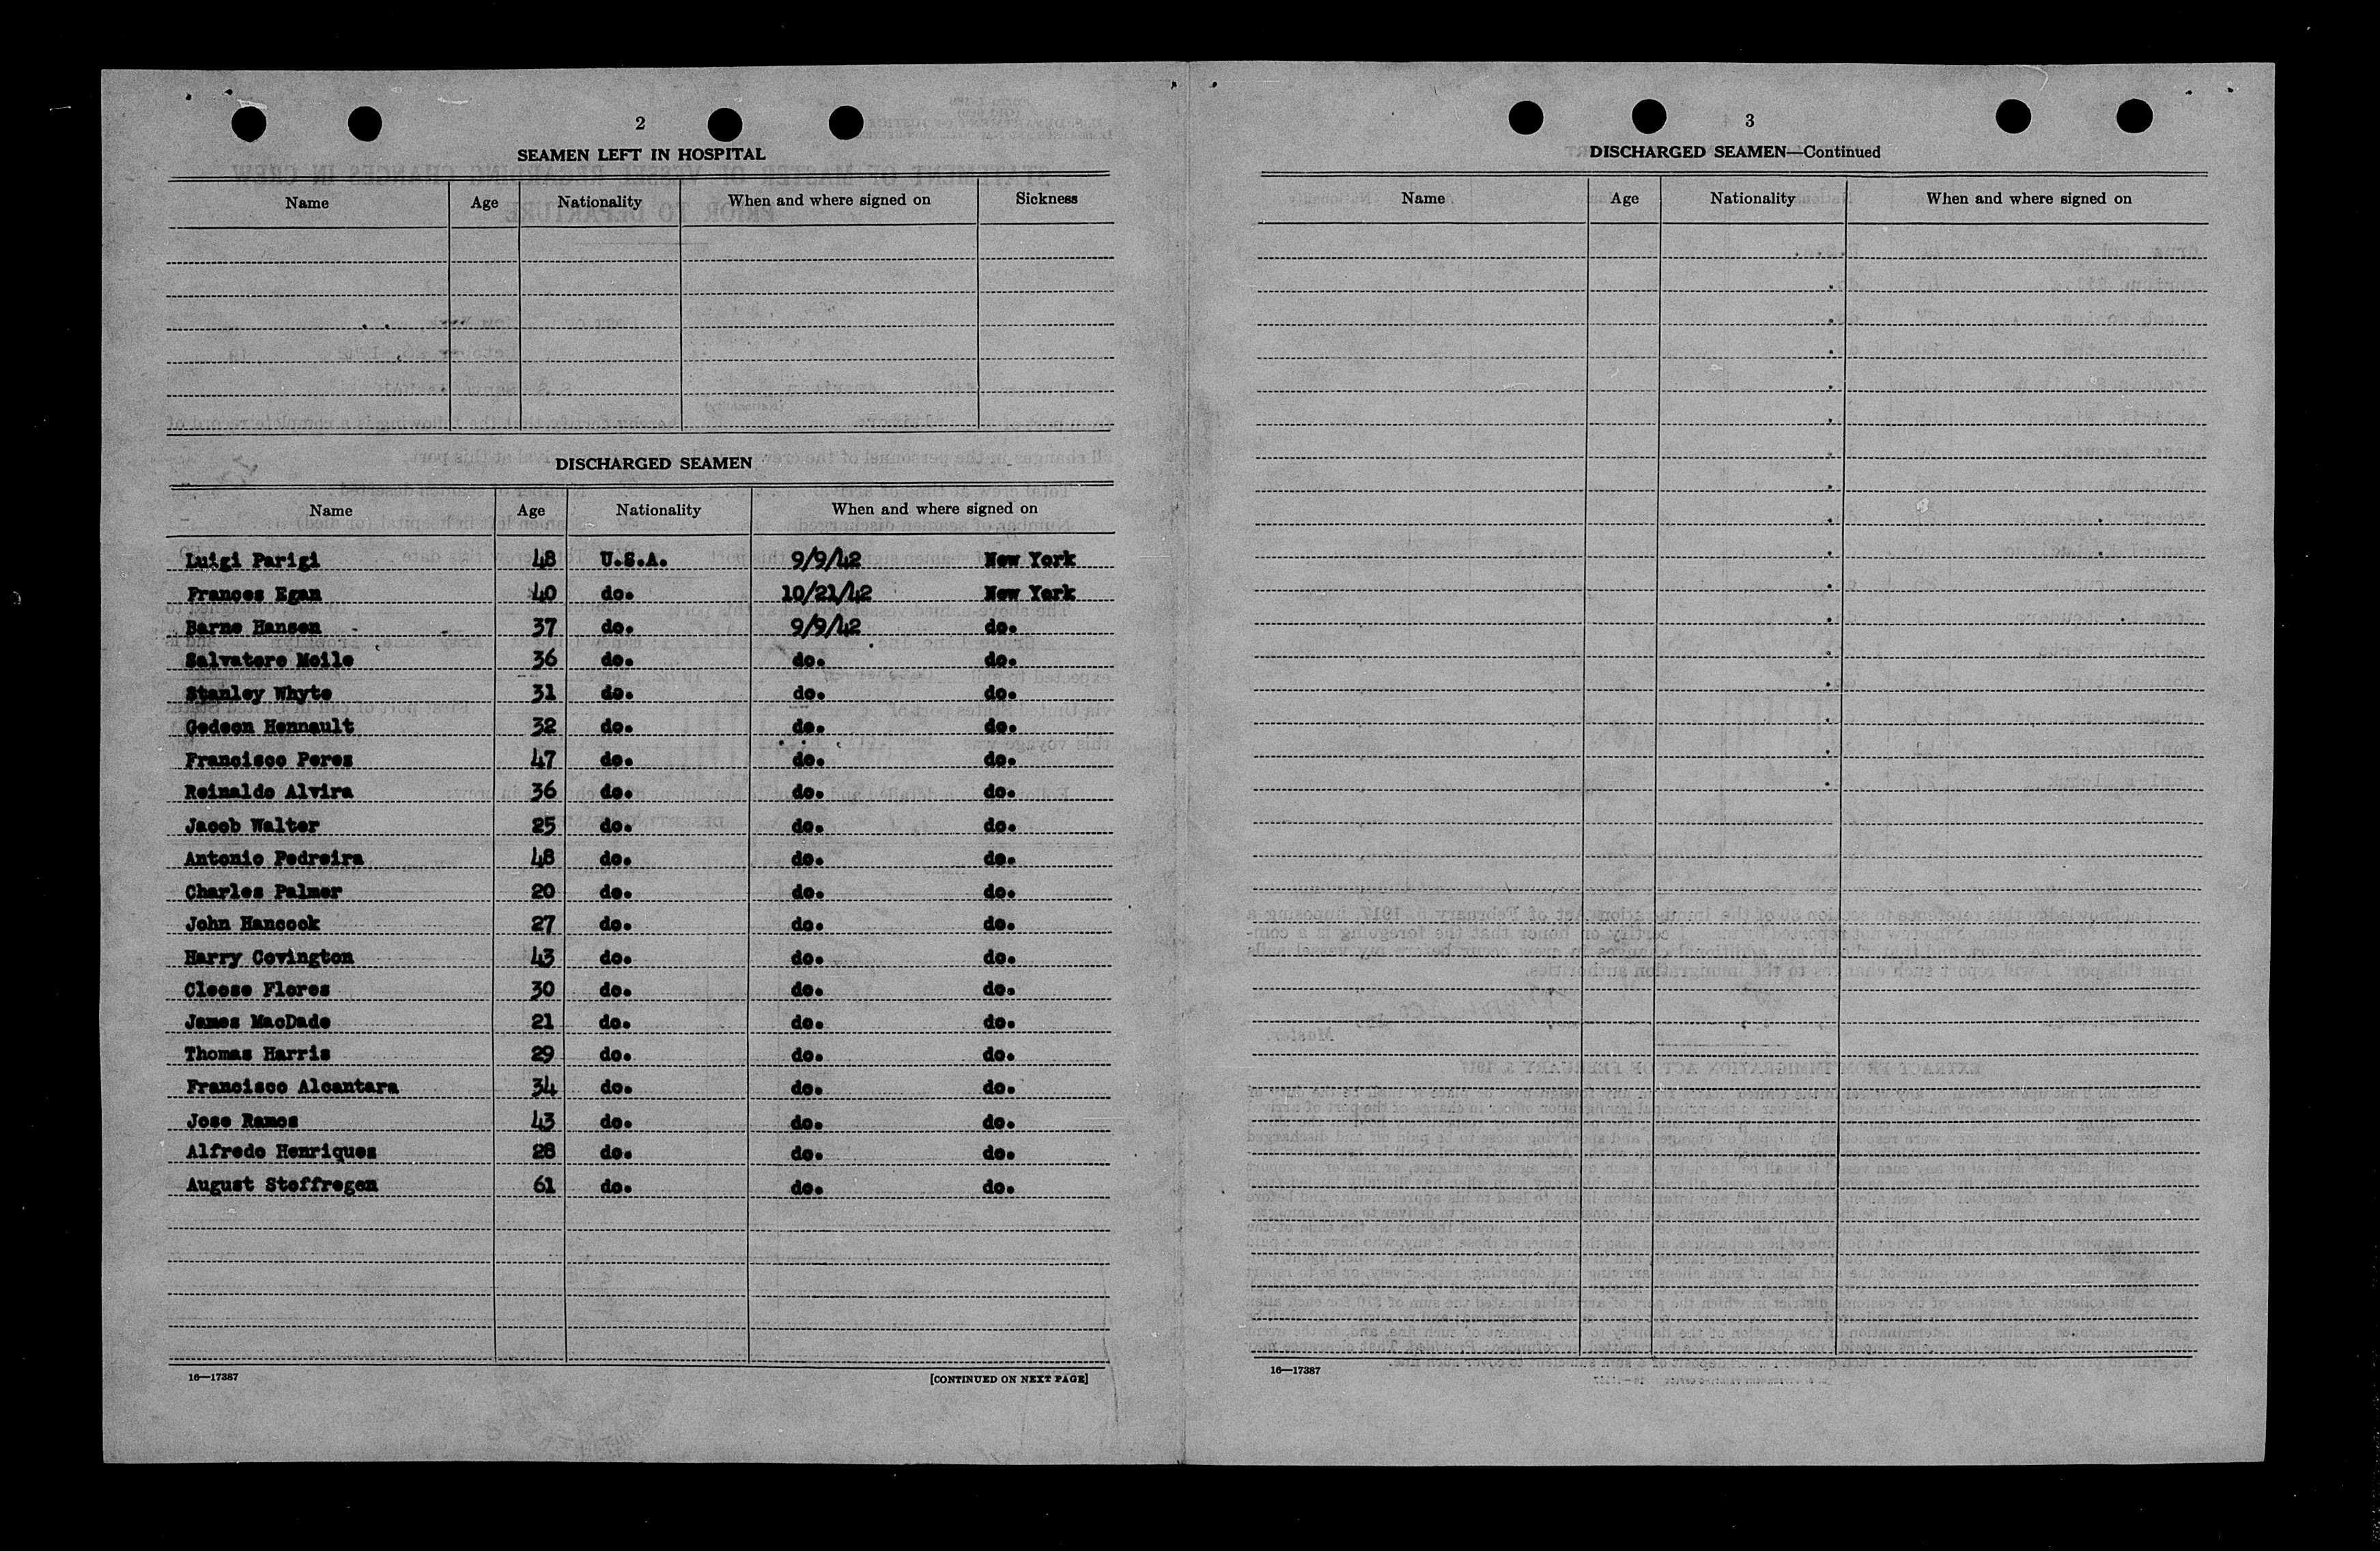 2
SEAMEN LEFT IN HOSPITAL
Name Age Nationality When and where signed on Sickness
DISCHARGED SEAMEN
Name Age Nationality When and where signed on
Luigi Parigi 48 U.S.A. 9/9/42 New York
Frances Egan 40 do. 10/21/42 New York
Barne Hansen 37 do. 9/9/42 do.
Salvatore Moile 36 do. do. do.
Stanley Whyte 31 do. do. do.
Gedeon Hennault 32 do. do. do.
Francisco Perez 47 do. do. do.
Reinaldo Alvira 36 do. do. do.
Jacob Walter 25 do. do. do.
Antonio Pedreira 48 do. do. do.
Charles Palmer 20 do. do. do.
John Hancock 27 do. do. do.
Harry Covington 43 do. do. do.
Cleose Flores 30 do. do. do.
James MacDade 21 do. do. do.
Thomas Harris 29 do. do. do.
Francisco Alcantara 34 do. do. do.
Jose Ramos 43 do. do. do.
Alfredo Henriques 28 do. do. do.
August Stoffregen 61 do. do. do.
16—17387 [CONTINUED ON NEXT PAGE]
3
DISCHARGED SEAMEN—Continued
Name Age Nationality When and where signed on
16—17387